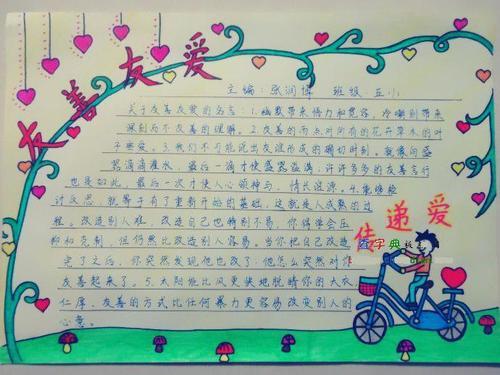 友善友爱
主编:张润博 班级:五小
关于友善友爱的名言:1.幽默带来悟力和宽容,冷嘲则带来
深刻而不友善的理解。2.友善的而点对所有的花卉草木的叶
子密密。3.我们不可能说出友谊形成的确切时刻,就像向盛
器滴滴灌水,最后一滴才使盛器溢满,许许多多的友善言行
也是如此,最后一次才使人心领神与,情长谊深。4.能够检
讨反思,就等于有了重新开始的基础,这就是人成熟的过
程。改造别人难,改造自己也特别不易,你得学会压
抑和克制,但仍然比改造别人容易。当你把自己改造
完了之后,你突然发现他也改了:他怎么突然对你
友善起来了。5.太阳能比风更快地脱下你的大衣
仁厚、友善的方式比任何暴力更容易改变别人的
心意。
传递爱
字典